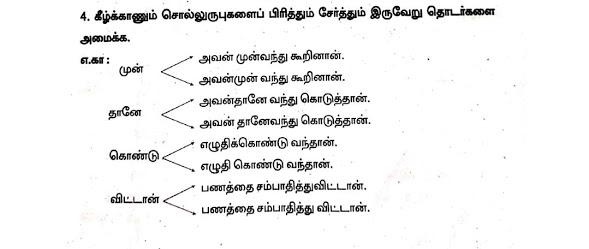 4. கீழ்க்காணும் சொல்லுருபுகளைப் பிரித்தும் சேர்த்தும் இருவேறு தொடர்களை
அமைக்க.
எ.கா :
முன்
அவன் முன்வந்து கூறினான்.
அவன்முன் வந்து கூறினான்.
தானே
அவன்தானே வந்து கொடுத்தான்.
அவன் தானேவந்து கொடுத்தான்.
கொண்டு
எழுதிக்கொண்டு வந்தான்.
எழுதி கொண்டு வந்தான்.
விட்டான்
பணத்தை சம்பாதித்துவிட்டான்.
பணத்தை சம்பாதித்து விட்டான்.